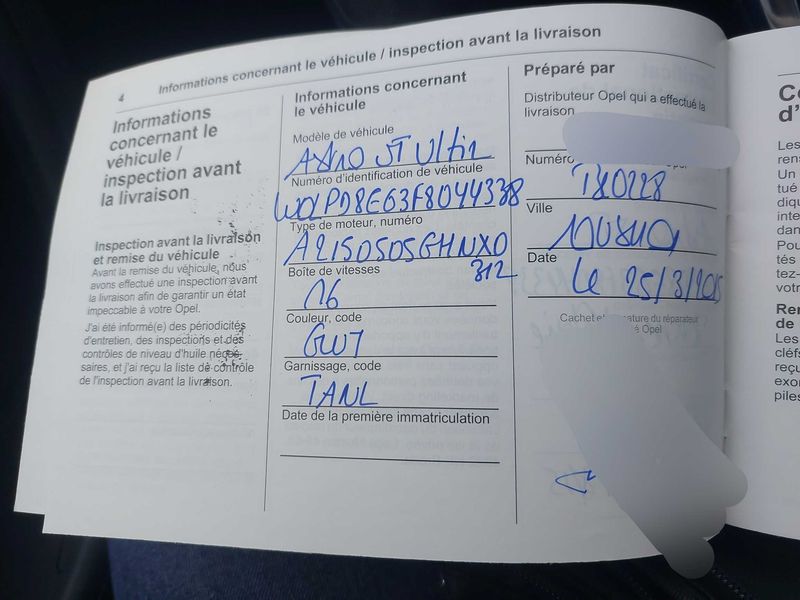 4
Informations concernant le véhicule / inspection avant la livraison
Informations
concernant le
véhicule /
inspection avant
la livraison
Inspection avant la livraison
et remise du véhicule
Avant la remise du véhicule, nous
avons effectué une inspection avant
la livraison afin de garantir un état
impeccable à votre Opel.
J'ai été informé(e) des périodicités
d'entretien, des inspections et des
contrôles de niveau d'huile néces-
saires, et j'ai reçu la liste de contrôle
de l'inspection avant la livraison.
Informations concernant
le véhicule
Modèle de véhicule
ST
Numéro d'identification de véhicule
W0LPD8EG3F8044338
Type de moteur, numéro
A2150505GHNX0
312
Boîte de vitesses
Couleur, code
GW7
Garnissage, code
TANL
Date de la première immatriculation
Préparé par
Distributeur Opel qui a effectué la
livraison
Numéro
Opel
Ville
Date
Le 25/3/2015
Cachet et
du réparateur
Opel
Les
Un
tué
Pou
tés
tez-
votr
Ren
de
Les
clefs
reçu
piles